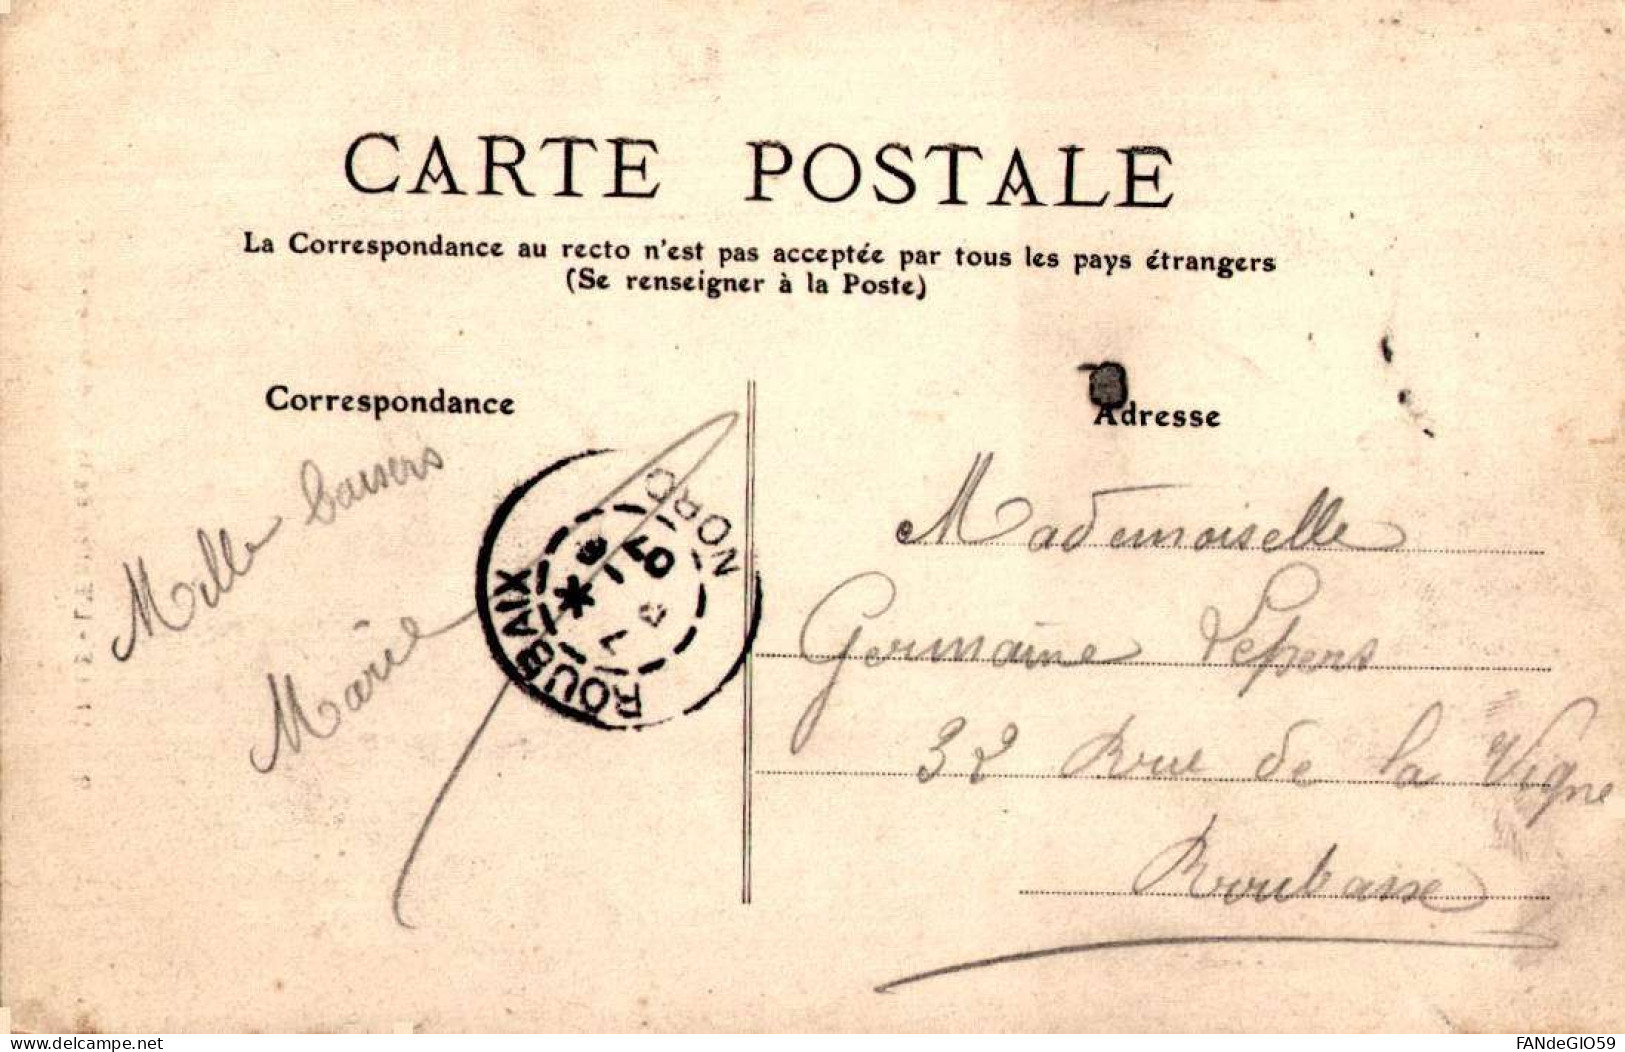 CARTE POSTALE
La Correspondance au recto n'est pas acceptée par tous les pays étrangers
(Se renseigner à la Poste)
Correspondance
Adresse
Mille baisers
Marie
ROUBAIX
NORD
Mademoiselle
Germaine Lepers
32 Rue de la Vigne
Roubaix
www.delcampe.net
FANdeGIO59